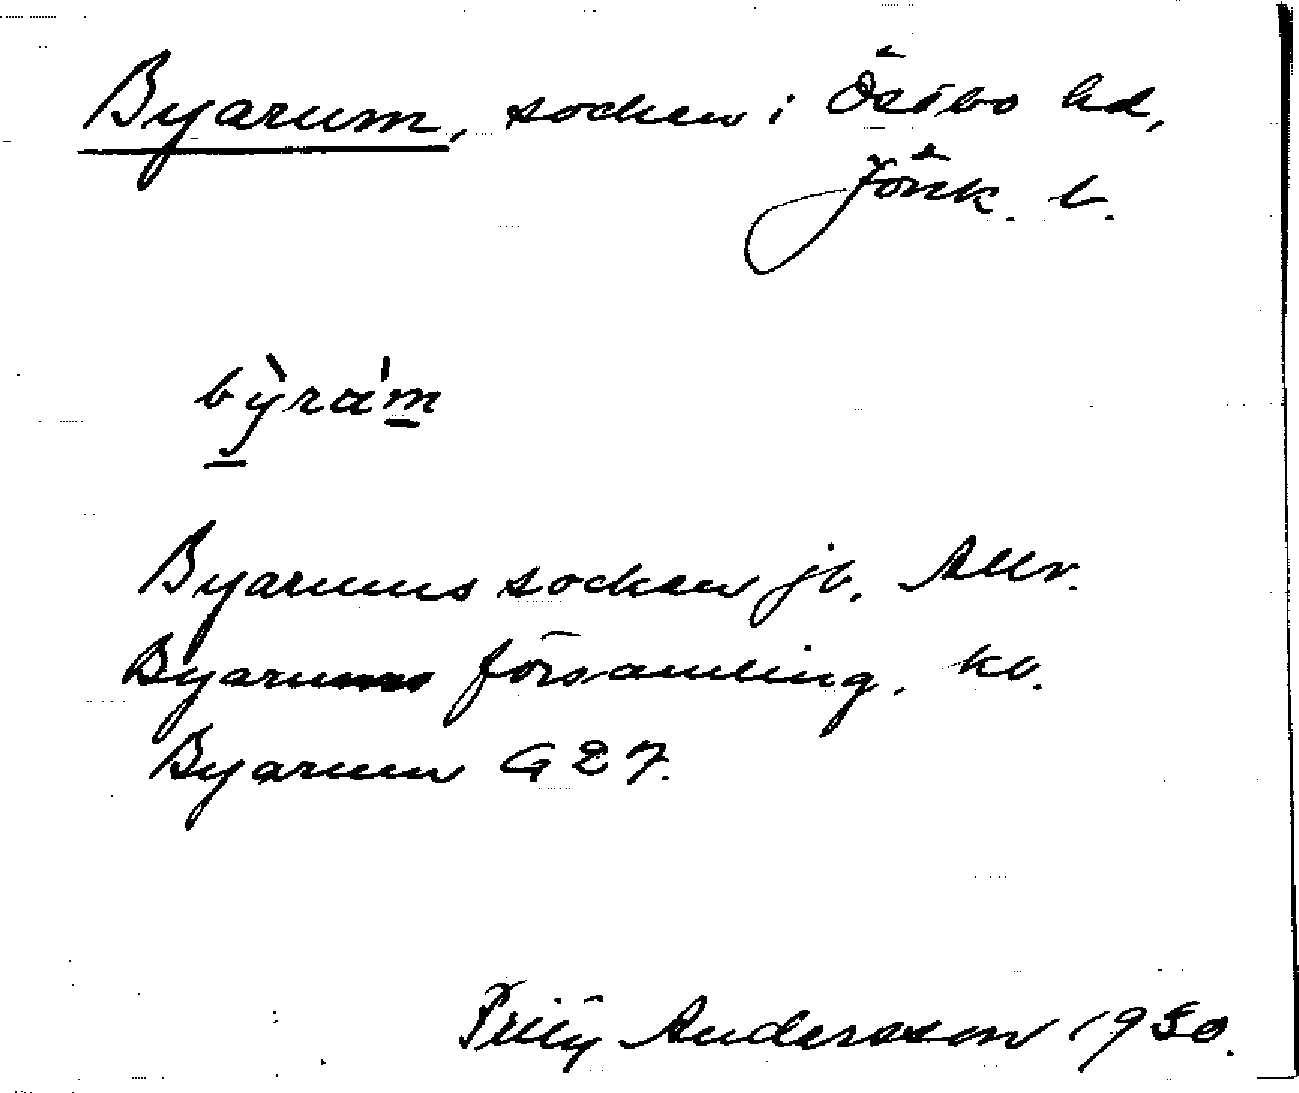 Byarum, socken i Östbo hd,
Jönk. l.
bỳrám
Byarums socken jb. Allm.
Byarums församling, kb.
Byarum G 27.
Fritz Andersson 1930.